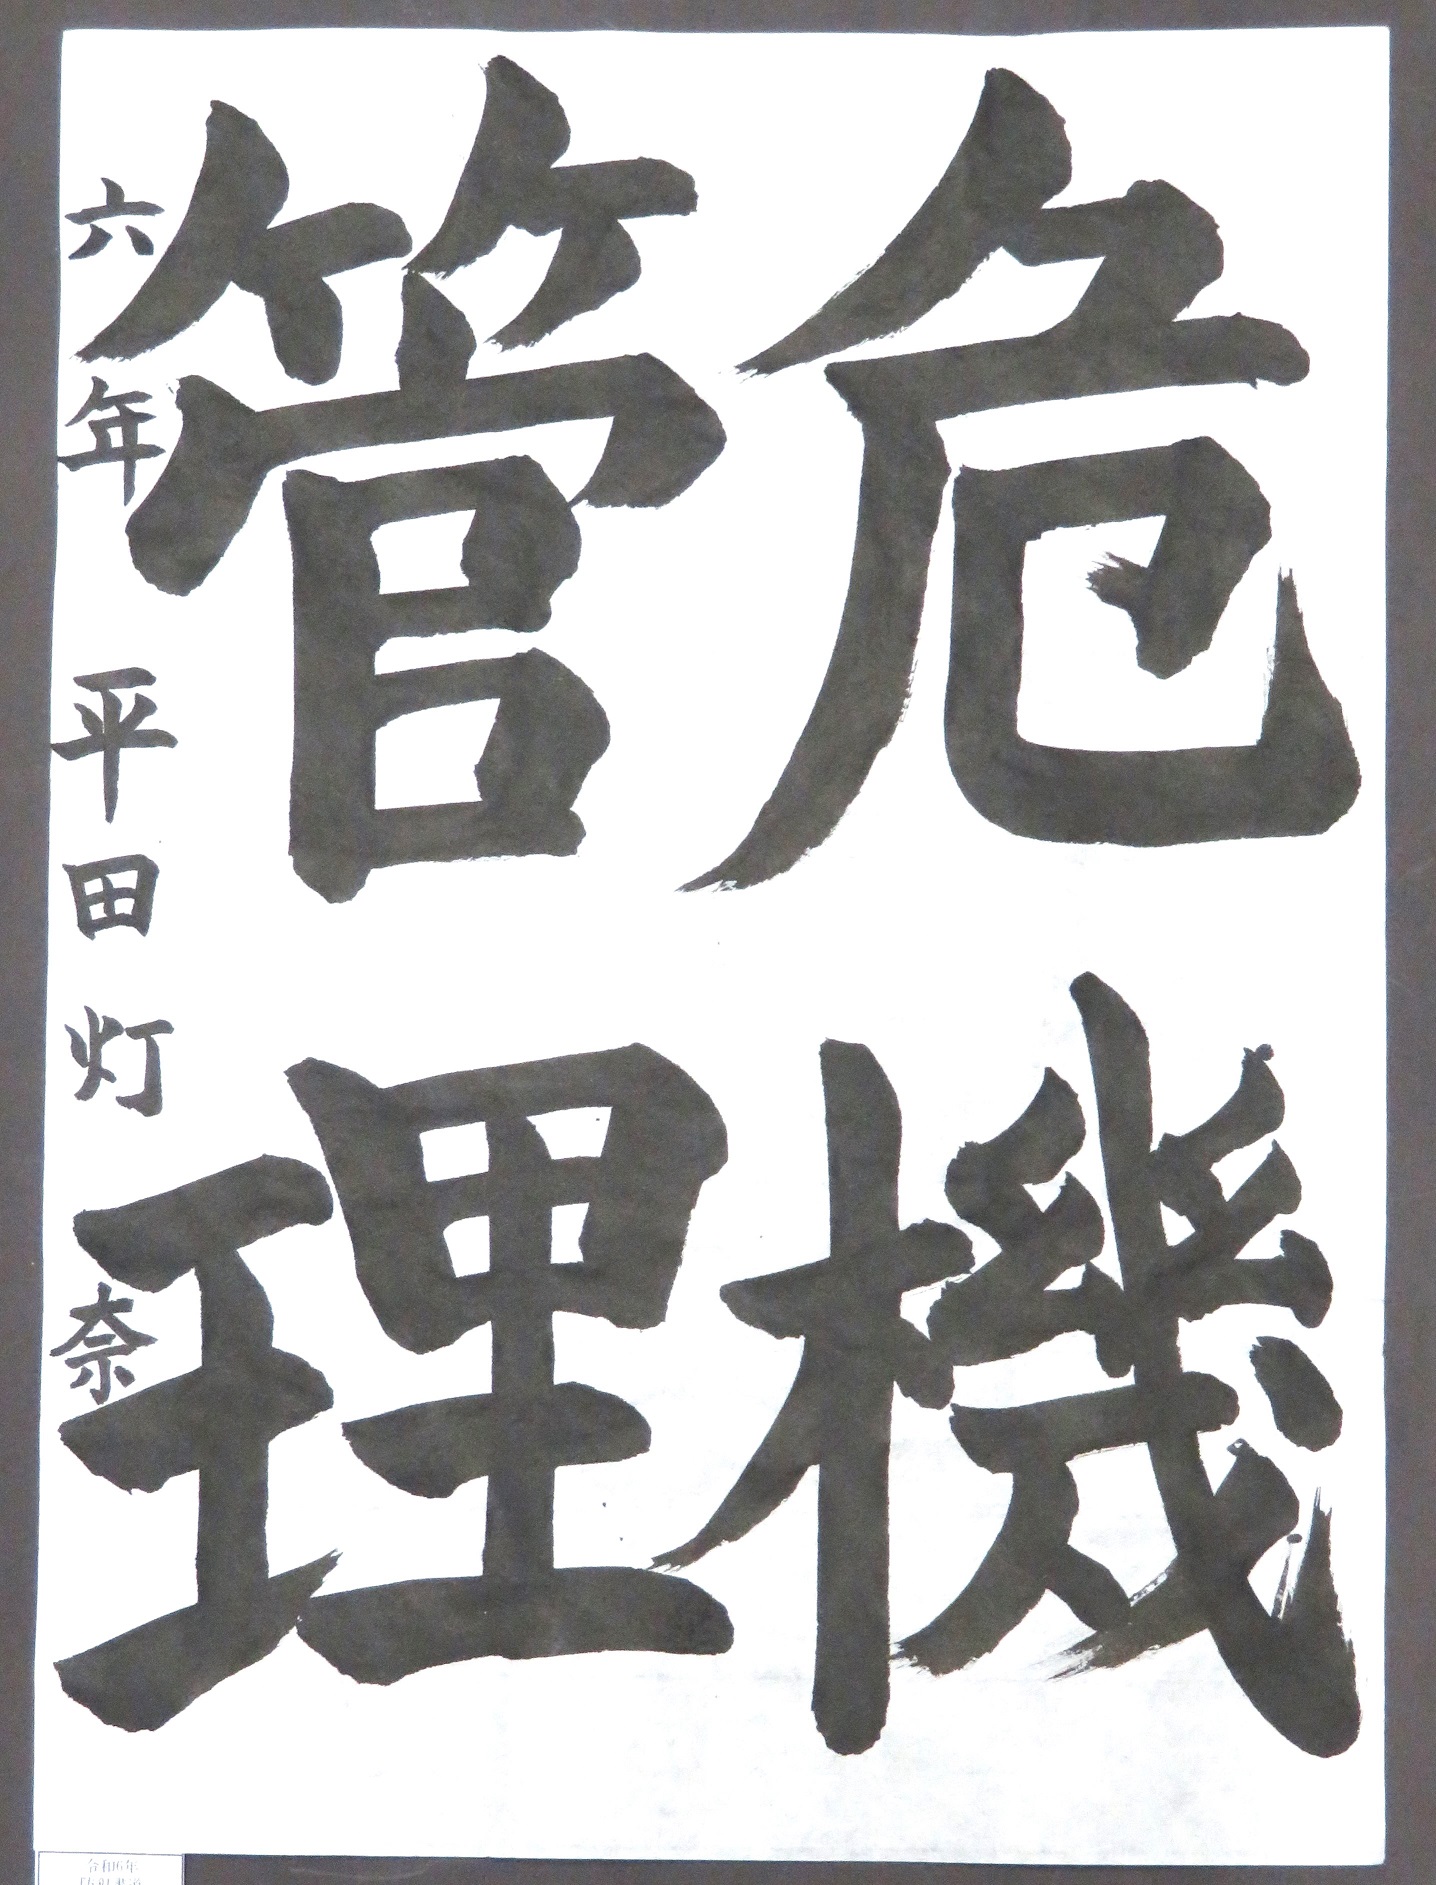 危機
管理
六年 平田灯奈
令和6年